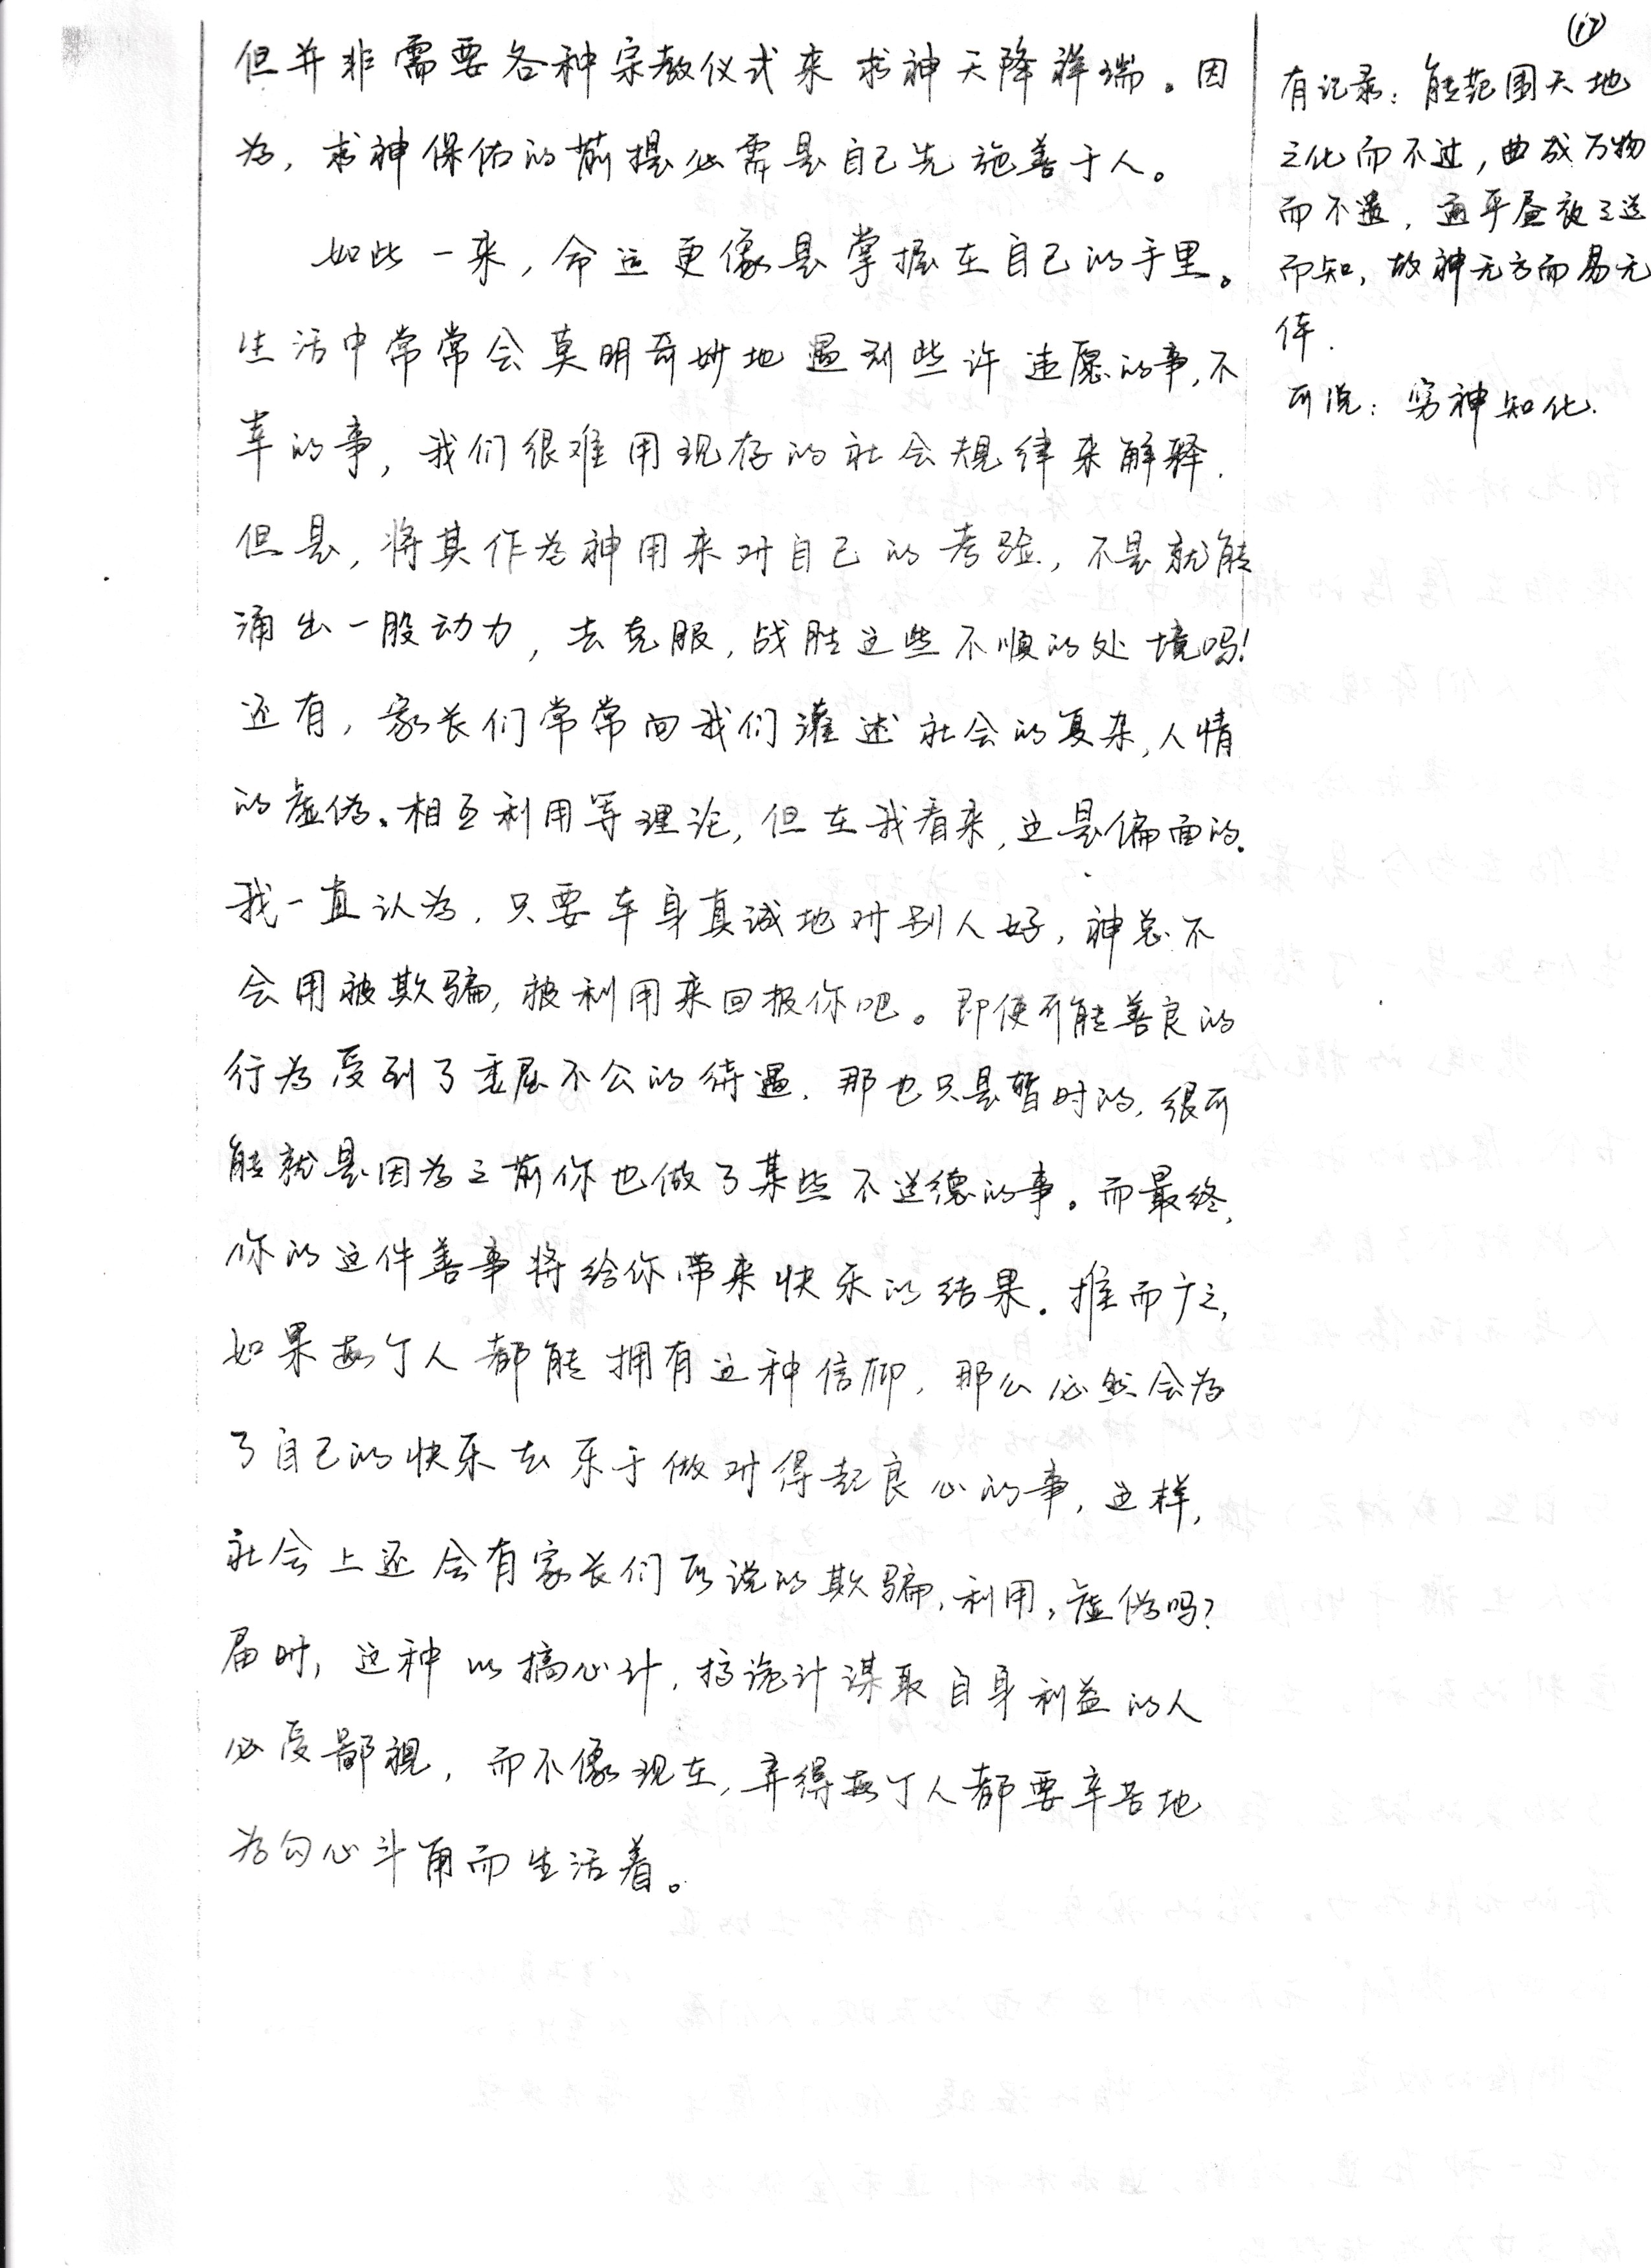 但并非需要各种宗教仪式来求神天降祥瑞。因
为，求神保佑的前提必需是自己先施善于人。
如此一来，命运更像是掌握在自己的手里。
生活中常常会莫明奇妙地遇到些许违愿的事，不
幸的事，我们很难用现存的社会规律来解释．
但是，将其作为神用来对自己的考验，不是就能
涌出一股动力，去克服，战胜这些不顺的处境吗！
还有，家长们常常向我们灌述社会的复杂，人情
的虚伪、相互利用等理论，但在我看来，这是偏面的．
我一直认为，只要本身真诚地对别人好，神总不
会用被欺骗，被利用来回报你吧。即使可能善良的
行为受到了委屈不公的待遇，那也只是暂时的，很可
能就是因为之前你也做了某些不道德的事。而最终，
你的这件善事将给你带来快乐的结果．推而广之，
如果每个人都能拥有这种信仰，那么必然会为
了自己的快乐去乐于做对得起良心的事，这样，
社会上还会有家长们所说的欺骗，利用，虚伪吗？
届时，这种以搞心计，搞诡计谋取自身利益的人
必受鄙视，而不像现在，弄得每个人都要辛苦地
为勾心斗角而生活着。
⑰
有记录：能范围天地
之化而不过，曲成万物
而不遗，通乎昼夜之道
而知，故神无方而易无
体．
所说：穷神知化．